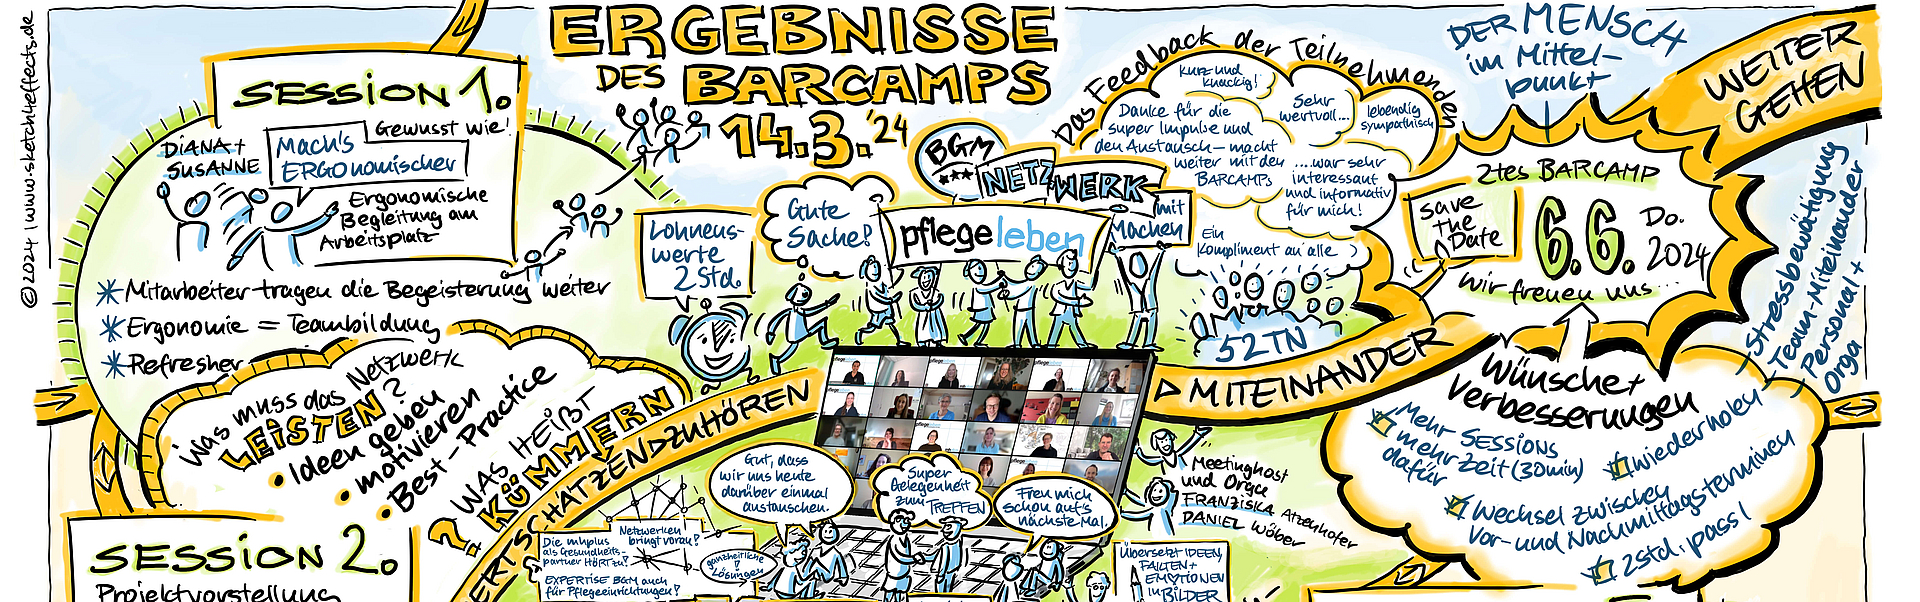 © 2024 | www.sketch4effects.de
ERGEBNISSE
DES BARCAMPS
14.3.'24
SESSION 1.
DIANA +
SUSANNE
Mach's
ERGOnomischer
Gewusst wie!
Ergonomische
Begleitung am
Arbeitsplatz
* Mitarbeiter tragen die Begeisterung weiter
* Ergonomie = Teambildung
* Refresher
Was muss das Netzwerk
LEISTEN?
• Ideen geben
• motivieren
• Best-Practice
SESSION 2.
Projektvorstellung
WAS HEIßT
KÜMMERN
?
WERTSCHÄTZENDZUHÖREN
▷ MITEINANDER
WEITER
GEHEN
Lohnens-
werte
2 Std.
Gute
Sache!
BGM
NETZWERK
pflegeleben
mit
Machen
Das Feedback der Teilnehmenden
kurz und
knackig!
Danke für die
super Impulse und
den Austausch – macht
weiter mit den
BARCAMPs
Sehr
wertvoll...
lebendig
sympathisch
....war sehr
interessant
und informativ
für mich!
Ein
Kompliment an alle
52 TN
DER MENSCH
im Mittel-
punkt
2tes BARCAMP
save
the
Date
6.6.
Do.
2024
wir freuen uns...
Stressbewältigung
Team-Miteinander
Personal +
Orga
Wünsche +
Verbesserungen
Mehr SESSIONS
mehr Zeit (30min)
dafür
wiederholen
Wechsel zwischen
Vor- und Nachmittagsterminen
2 Std. passt
Gut, dass
wir uns heute
darüber einmal
austauschen.
Super
Gelegenheit
zum
TREFFEN
Freu mich
schon auf's
nächste Mal.
Meetinghost
und Orga
FRANZISKA Atzenhofer
DANIEL Wöber
Netzwerken
bringt voran!
Die mhplus
als Gesundheits-
partner HÖRT zu!
EXPERTISE BGM auch
für Pflegeeinrichtungen!
ganzheitliche
Lösungen
Übersetzt IDEEN,
FAKTEN +
EMOTIONEN
in BILDER